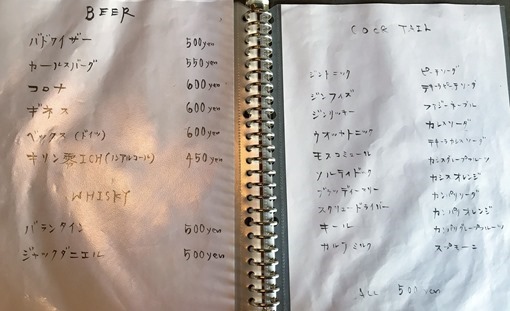 BEER
バドワイザー 500yen
カールスバーグ 550yen
コロナ 600yen
ギネス 600yen
ベックス(ドイツ) 600yen
キリン零ICH(ノンアルコール) 450yen
WHISKY
バランタイン 500yen
ジャックダニエル 500yen
COCKTAIL
ジントニック
ジンフィズ
ジンリッキー
ウオッカトニック
モスコミュール
ソルティドック
ブラッディーマリー
スクリュードライバー
キール
カルアミルク
ピーチソーダ
テキーラピーチソーダ
ファジーネーブル
カシスソーダ
テキーラカシスソーダ
カシスグレープフルーツ
カシスオレンジ
カンパリソーダ
カンパリオレンジ
カンパリグレープフルーツ
スプモーニ
ALL 500yen